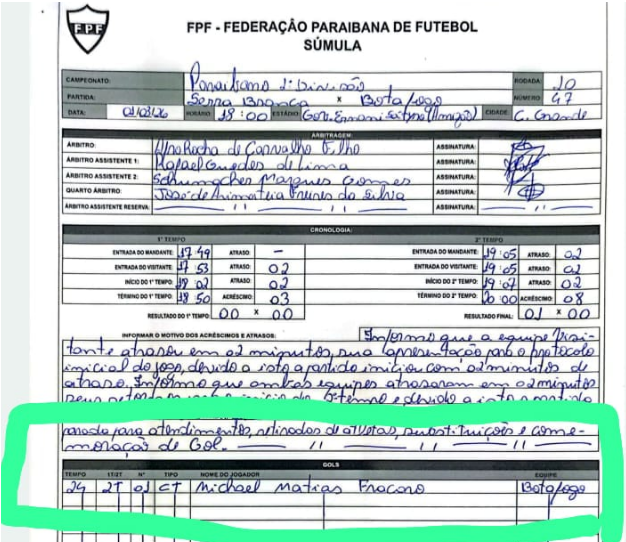 FPF
FPF - FEDERAÇÃO PARAIBANA DE FUTEBOL
SÚMULA
CAMPEONATO: Paraibano 1ª Divisão RODADA: 10
PARTIDA: Serra Branca x Botafogo NÚMERO: 47
DATA: 01/03/26 HORÁRIO 18:00 ESTÁDIO Gov. Ernani Satyro (Amigão) CIDADE C. Grande
ARBITRAGEM:
ÁRBITRO: Afro Rocha de Carvalho Filho ASSINATURA:
ÁRBITRO ASSISTENTE 1: Rafael Guedes de Lima ASSINATURA:
ÁRBITRO ASSISTENTE 2: Schumacher Marques Gomes ASSINATURA:
QUARTO ÁRBITRO: José de Arimateia Freires da Silva ASSINATURA:
ÁRBITRO ASSISTENTE RESERVA: ASSINATURA:
CRONOLOGIA:
1º TEMPO 2º TEMPO
ENTRADA DO MANDANTE: 17:49 ATRASO: - ENTRADA DO MANDANTE: 19:05 ATRASO: 02
ENTRADA DO VISITANTE: 17:53 ATRASO: 02 ENTRADA DO VISITANTE: 19:05 ATRASO: 02
INÍCIO DO 1º TEMPO: 18:02 ATRASO: 02 INÍCIO DO 2º TEMPO: 19:07 ATRASO: 02
TÉRMINO DO 1º TEMPO: 18:50 ACRÉSCIMO: 03 TÉRMINO DO 2º TEMPO: 20:00 ACRÉSCIMO: 08
RESULTADO DO 1º TEMPO: 00 x 00 RESULTADO FINAL: 01 x 00
INFORMAR O MOTIVO DOS ACRÉSCIMOS E ATRASOS: Informo que a equipe Visi-
tante atrasou em 02 minutos, sua apresentação para o protocolo
inicial do jogo, devido a isto a partida iniciou com 02 minutos de
atraso. Informo que ambas equipes atrasaram em 02 minutos
seus
parada para atendimentos, retiradas de atletas, substituições e come-
moração de Gol.
GOLS
TEMPO 1T/2T Nº TIPO NOME DO JOGADOR EQUIPE
24 2T 01 CT Michael Matias Fracaro Botafogo